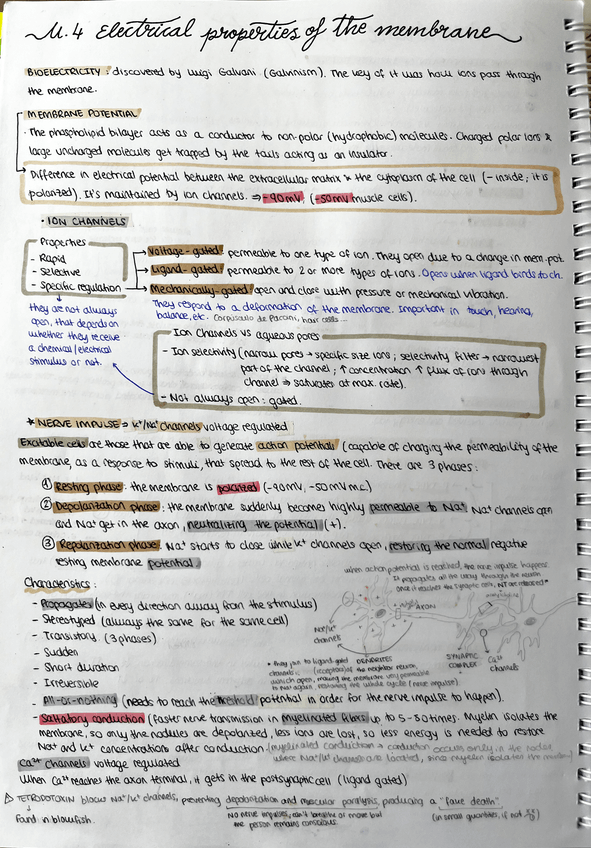 U.4 Electrical properties of the membrane
BIOELECTRICITY: discovered by Luigi Galvani (Galvinism). The key of it was how ions pass through
the membrane.
MEMBRANE POTENTIAL
· The phospholipid bilayer acts as a conductor to non-polar (hydrophobic) molecules. Charged polar ions &
large uncharged molecules get trapped by the tails acting as an insulator.
Difference in electrical potential between the extracellular matrix & the cytoplasm of the cell (- inside; it is
polarized). It's maintained by ion channels. ⇒ -90mV. (-50mV muscle cells).
· ION CHANNELS
Properties
- Rapid
- Selective
- Specific regulation
Voltage-gated: permeable to one type of ion. They open due to a change in mem. pot.
Ligand-gated: permeable to 2 or more types of ions. Opens when ligand binds to ch.
Mechanically-gated: open and close with pressure or mechanical vibration.
They respond to a deformation of the membrane. Important in touch, hearing,
balance, etc. Corpúsculo de Pacini, hair cells...
they are not always
open, that depends on
whether they receive
a chemical/electrical
stimulus or not.
Ion Channels vs aqueous pores
- Ion selectivity (narrow pores → specific size ions; selectivity filter → narrowest
part of the channel; ↑ concentration ↑ flux of ions through
channel ⇒ saturates at max. rate).
- Not always open: gated.
* NERVE IMPULSE ⇒ K+/Na+ Channels voltage regulated
Excitable cells are those that are able to generate action potentials (capable of changing the permeability of the
membrane, as a response to stimuli, that spread to the rest of the cell. There are 3 phases:
① Resting phase: the membrane is polarized (-90mV, -50mV m.c.)
② Depolarization phase: the membrane suddenly becomes highly permeable to Na+. Na+ channels open
and Na+ get in the axon, neutralizing the potential (+).
③ Repolarization phase. Na+ starts to close while K+ channels open, restoring the normal negative
resting membrane potential.
when action potential is reached, the nerve impulse happens.
It propagates all the way through the neuron
once it reaches the synaptic cells, NT are released*
Characteristics:
- Propagates (in every direction away from the stimulus)
- Stereotyped (always the same for the same cell)
- Transitory (3 phases)
- Sudden
- Short duration
- Irreversible
AXON
Na+/K+
channels
DENDRITES
SYNAPTIC
COMPLEX
Ca2+
channels
* they join to ligand-gated
channels (receptors) of the neighbor neuron,
which open, making the membrane very permeable
to Na+ again, restarting the whole cycle (nerve impulse).
- All-or-nothing (needs to reach the treshold potential in order for the nerve impulse to happen).
- Saltatory conduction (faster nerve transmission in myelinated fibers up to 5-50 times. Myelin isolates the
membrane, so only the nodules are depolarized, less ions are lost, so less energy is needed to restore
Na+ and K+ concentrations after conduction. (myelinated conduction → conduction occurs only in the nodes
where Na+/K+ channels are located, since myelin isolates the membrane)
Ca2+ channels voltage regulated
When Ca2+ reaches the axon terminal, it gets in the postsynaptic cell (ligand gated)
⚠ TETRODOTOXIN blocks Na+/K+ channels, preventing depolarization and muscular paralysis, producing a "fake death".
Found in blowfish.
No nerve impulses, can't breathe or move but
the person remains conscious.
(in small quantities, if not ☠☠)